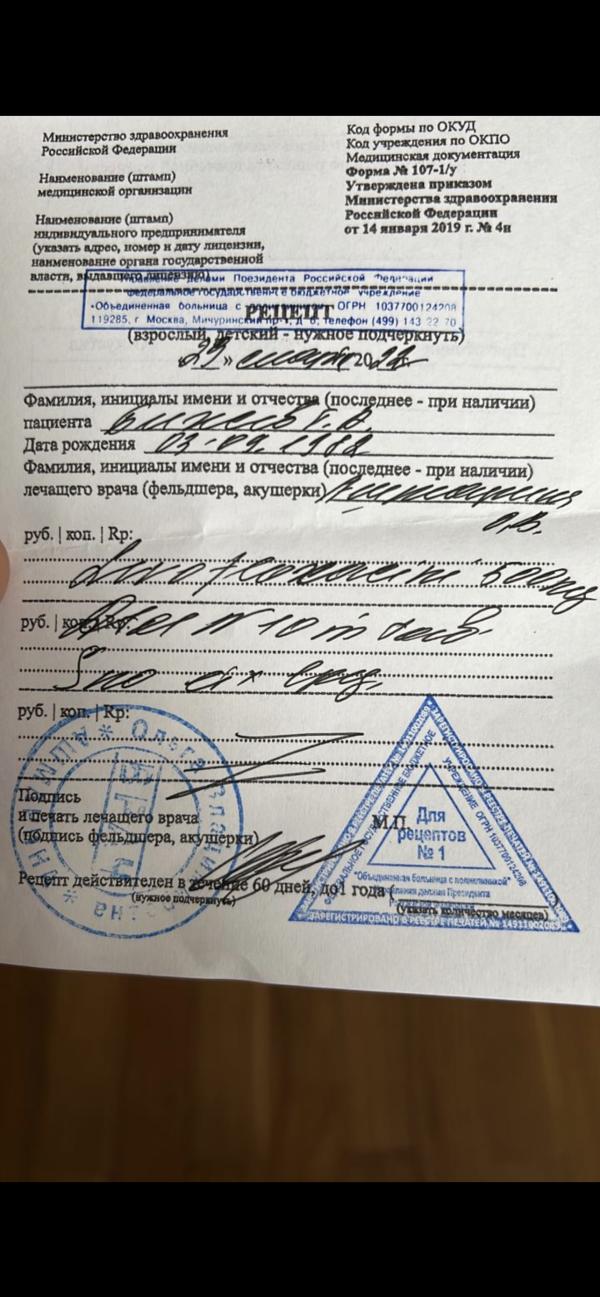 Министерство здравоохранения
Российской Федерации
Наименование (штамп)
медицинской организации
Наименование (штамп)
индивидуального предпринимателя
(указать адрес, номер и дату лицензии,
наименование органа государственной
власти, выдавшего лицензию)
Код формы по ОКУД
Код учреждения по ОКПО
Медицинская документация
Форма № 107-1/у
Утверждена приказом
Министерства здравоохранения
Российской Федерации
от 14 января 2019 г. № 4н
Управление делами Президента Российской Федерации
федеральное государственное бюджетное учреждение
«Объединенная больница с ОГРН 1037700124208
119285, г. Москва, Мичуринский пр-т, д 6, телефон (499) 143 22 70
РЕЦЕПТ
(взрослый, детский - нужное подчеркнуть)
«29» марта 2022 г.
Фамилия, инициалы имени и отчества (последнее - при наличии)
пациента
Дата рождения 03.09.1988
Фамилия, инициалы имени и отчества (последнее - при наличии)
лечащего врача (фельдшера, акушерки)
О.В.
руб. | коп. | Rp:
500mg
руб. | коп. | Rp:
N 10 in tab.
S по
руб. | коп. | Rp:
Подпись
и печать лечащего врача
(подпись фельдшера, акушерки)
М.П.
Рецепт действителен в течение 60 дней, до 1 года (
(нужное подчеркнуть)
(указать количество месяцев)
Ольга
ВРАЧ
ЗАРЕГИСТРИРОВАНО В РЕЕСТРЕ ПЕЧАТЕЙ № 14911002089
ФЕДЕРАЛЬНОЕ ГОСУДАРСТВЕННОЕ БЮДЖЕТНОЕ УЧРЕЖДЕНИЕ ОГРН 1037700124208
Для
рецептов
№ 1
"Объединенная больница с поликлиникой"
Управления делами Президента